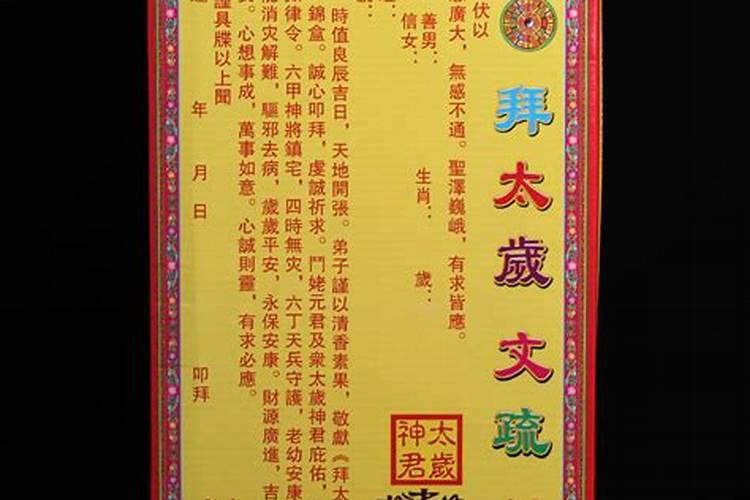 拜太歲文疏
伏以
感廣大，無感不通。聖澤巍峨，有求皆應。
善男：
信女：
生肖：
歲：
時值良辰吉日，天地開張。弟子謹以清香素果，敬獻《拜太
錦盒。誠心叩拜，虔誠祈求。鬥姥元君及衆太歲神君庇佑，
律令。六甲神將鎮宅，四時無灾，六丁天兵守護，老幼安康
消灾解難，驅邪去病，歲歲平安，永保安康。財源廣進，吉
。心想事成，萬事如意。心誠則靈，有求必應。
謹具牒以上聞
年 月 日 叩拜
太歲
神君